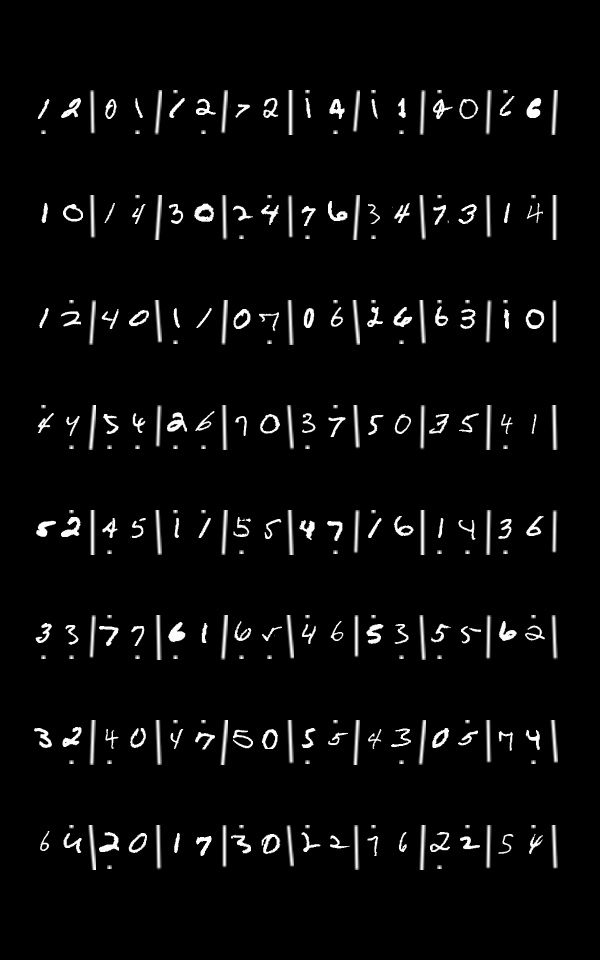 1̣ 2 | 0 1 | 1̇ 2̣ | 7 2 | 1̇ 4̣ | 1̇ 1̣ | 4̇ 0 | 6̇ 6 |
1 0 | 1 4̇ | 3 0 | 2̣ 4̇ | 7̇ 6 | 3̣ 4 | 7̇ 3 | 1 4̇ |
1 2̇ | 4 0 | 1̣ 1 | 0 7̣ | 0 6̇ | 2̇ 6̣ | 6̇ 3̇ | 1̇ 0 |
4̇ 4̣ | 5̣ 4̣ | 2̣ 6̣ | 7 0 | 3̣ 7̇ | 5 0 | 3 5 | 4̣ 1 |
5 2̇ | 4̣ 5 | 1̇ 1̇ | 5̇ 5 | 4 7̣ | 1̇ 6 | 1̇ 4̣ | 3̣ 6 |
3̣ 3̣ | 7̇ 7 | 6̣ 1 | 6̣ 5̣ | 4̇ 6 | 5̇ 3̣ | 5̇ 5 | 6 2̇ |
3 2̣ | 4̣ 0 | 4̇ 7̇ | 5 0 | 5̇ 5̇ | 4 3̣ | 0 5̇ | 7 4̣ |
6 4̇ | 2̣ 0 | 1 7 | 3 0 | 2̇ 2 | 7̇ 6 | 2̣ 2̇ | 5 4̇ |